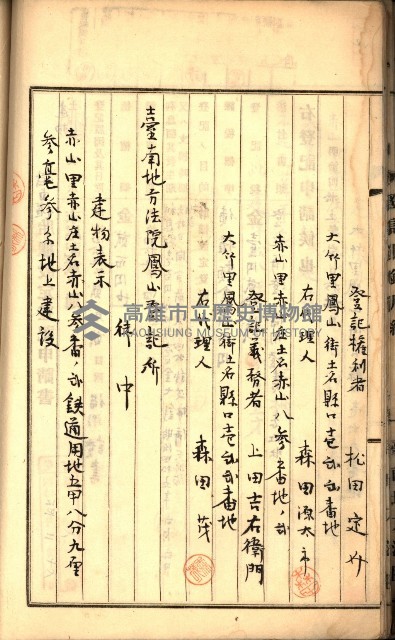 登記権利者　松田定
大竹里鳳山街土名縣口壱弐弐番地
右代理人　森田源太
赤山里赤山庄土名赤山八参番地ノ弐
登記義務者　上田吉右衛門
大竹里鳳山街土名縣口壱弐弐番地
右代理人　森田茂
臺南地方法院鳳山登記所
御中
建物表示
赤山里赤山庄土名赤山八参番ノ弐鉄道用地五甲八分九厘
参毫参糸地上建設
高雄市立歷史博物館
KAOHSIUNG MUSEUM OF HISTORY